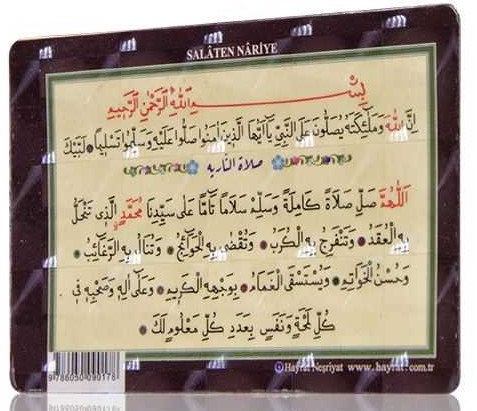 SALÂTEN NÂRİYE
بِسْمِ اللهِ الرَّحْمٰنِ الرَّحِيمِ
اِنَّ اللهَ وَمَلٰٓئِكَتَهُ يُصَلُّونَ عَلَى النَّبِيِّ يَٓا اَيُّهَا الَّذِينَ اٰمَنُوا صَلُّوا عَلَيْهِ وَسَلِّمُوا تَسْلِيمًا لَبَّيْكَ
صلاة النارية
اَللّٰهُمَّ صَلِّ صَلَاةً كَامِلَةً وَسَلِّمْ سَلَامًا تَٓامًّا عَلٰى سَيِّدِنَا مُحَمَّدٍ الَّذِي تَنْحَلُّ
بِهِ الْعُقَدُ وَتَنْفَرِجُ بِهِ الْكُرَبُ وَتُقْضٰى بِهِ الْحَوَٓائِجُ وَتُنَالُ بِهِ الرَّغَٓائِبُ
وَحُسْنُ الْخَوَاتِمِ وَيُسْتَسْقَى الْغَمَامُ بِوَجْهِهِ الْكَرِيمِ وَعَلٰٓى اٰلِهِ وَصَحْبِهِ فِي
كُلِّ لَمْحَةٍ وَنَفَسٍ بِعَدَدِ كُلِّ مَعْلُومٍ لَكَ
9786050090178
Hayrat Neşriyat www.hayrat.com.tr